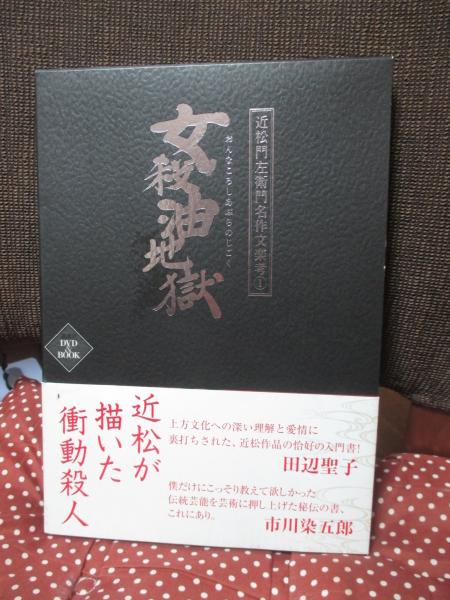 近松門左衛門名作文楽考①
女殺油地獄
おんなころしあぶらのじごく
DVD
&BOOK
近松が
描いた
衝動殺人
上方文化への深い理解と愛情に
裏打ちされた、近松作品の恰好の入門書!
田辺聖子
僕だけにこっそり教えて欲しかった
伝統芸能を芸術に押し上げた秘伝の書、
これにあり。
市川染五郎